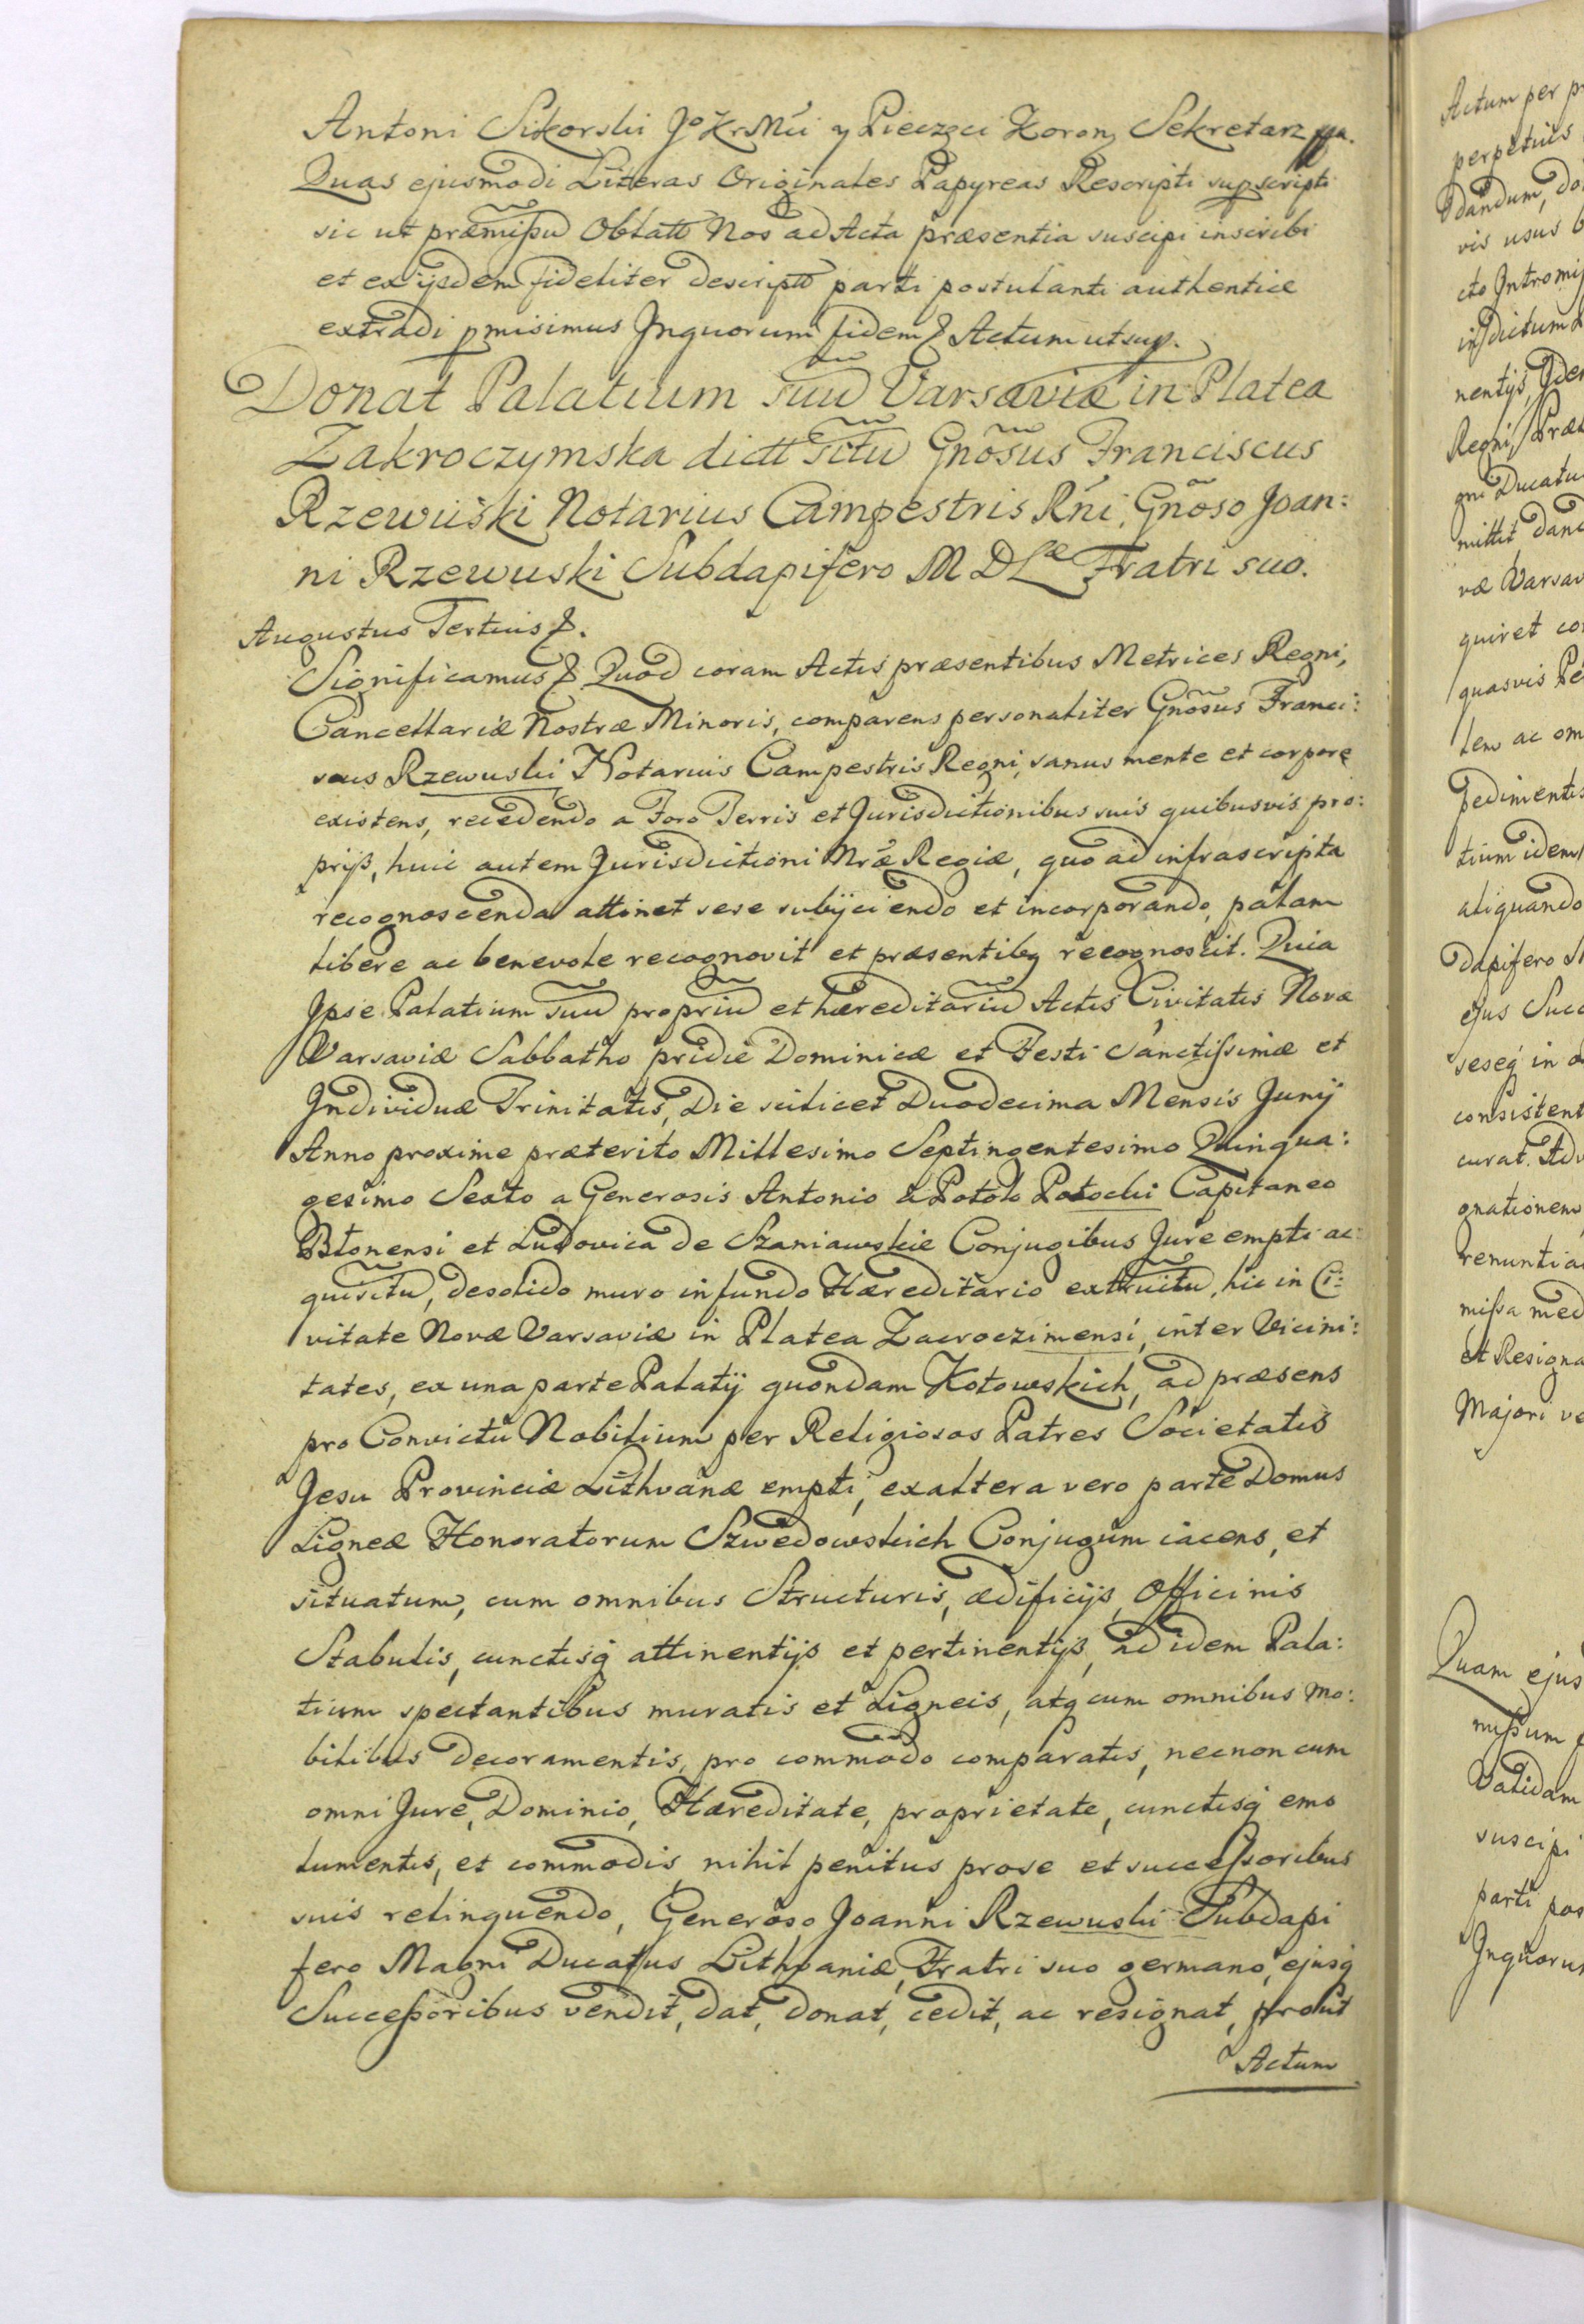 Antoni Sikorski Jº KrMći y Pieczęci Koron. Sekretarz
Quas ejusmodi Literas Originales Papyreas Rescripti suprscripti
sic ut præmißũ Oblatt Nos ad Acta præsentia suscipi inscribi
et ex ijsdem fideliter descriptt parti postulanti authentice
extradi pmisimus Inquorum fidem & Actum ut sup.
Donat Palatium suũ Varsaviæ in Platea
Zakroczymska dictt sitũ Gñosus Franciscus
Rzewuski Notarius Campestris Rńi, Gñoso Joan:
ni Rzewuski Subdapifero M D Læ Fratri suo.
Augustus Tertius &.
Significamus & Quod coram Actis præsentibus Metrices Regni,
Cancellariæ Nostræ Minoris, comparens personaliter Gñosus Franci:
scus Rzewuski Notarius Campestris Regni, sanus mente et corpore
existens, recedendo a Foro Terris et Jurisdictionibus suis quibusvis pro:
prijs, huic autem Jurisdictioni Nræ Regiæ, quo ad infrascripta
recognoscenda attinet sese subijciendo et incorporando, palam
libere ac benevole recognovit et præsentibq recognoscit. Quia
Ipse Palatium suũ propriũ et hæreditariũ Actis Civitatis Novæ
Varsaviæ Sabbatho pridie Dominicæ et Festi Sanctißimæ et
Individuæ Trinitatis, Die scilicet Duodecima Mensis Junij
Anno proxime præterito Millesimo Septingentesimo Quinqua:
gesimo Sexto a Generosis Antonio a Potok Potocki Capitaneo
Błonensi et Ludovica de Szaniawskie Conjugibus Jure empti ac:
quisitũ, desolido muro in fundo Hæreditario extructũ, hic in Ci:
vitate Novæ Varsaviæ in Platea Zacroczimensi, inter Vicini:
tates, ex una parte Palatij quondam Kotowskich, ad præsens
pro Convictu Nobilium per Religiosos Patres Societatis
Jesu Provinciæ Lithvanæ empti, exaltera vero parte Domus
Ligneæ Honoratorum Szwedowskich Conjugum iacens, et
situatum, cum omnibus Structuris, ædificijs, Officinis
Stabulis, cunctisq attinentijs et pertinentijs, ad idem Pala:
tium spectantibus muratis et Ligneis, atq cum omnibus mo:
bilibus decoramentis, pro commodo comparatis, necnon cum
omni Jure, Dominio, Hæreditate, proprietate, cunctisq emo
lumentis, et commodis nihil penitus prose et successoribus
suis relinquendo, Generoso Joanni Rzewuski Subdapi
fero Magni Ducatus Lithvaniæ, Fratri suo germano, ejusq
Succeßoribus vendit, dat, donat, cedit, ac resignat, prout
Actum
Actum per
perpetuis
dandum,
vis usus
cto Intromi
indictum
nentijs,
Regni,
gni Ducatu
mittit
væ Varsav
quiret
quasvis
ac om
pedimentis
tium idem
aliquando
dapifero
ejus Succ
seseq in
consistent
curat.
gnationem
renuntia
mißa med
et Resigna
Majori ve
Quam ejus
mißum
Validam
suscipi
parti pos
Inquorum